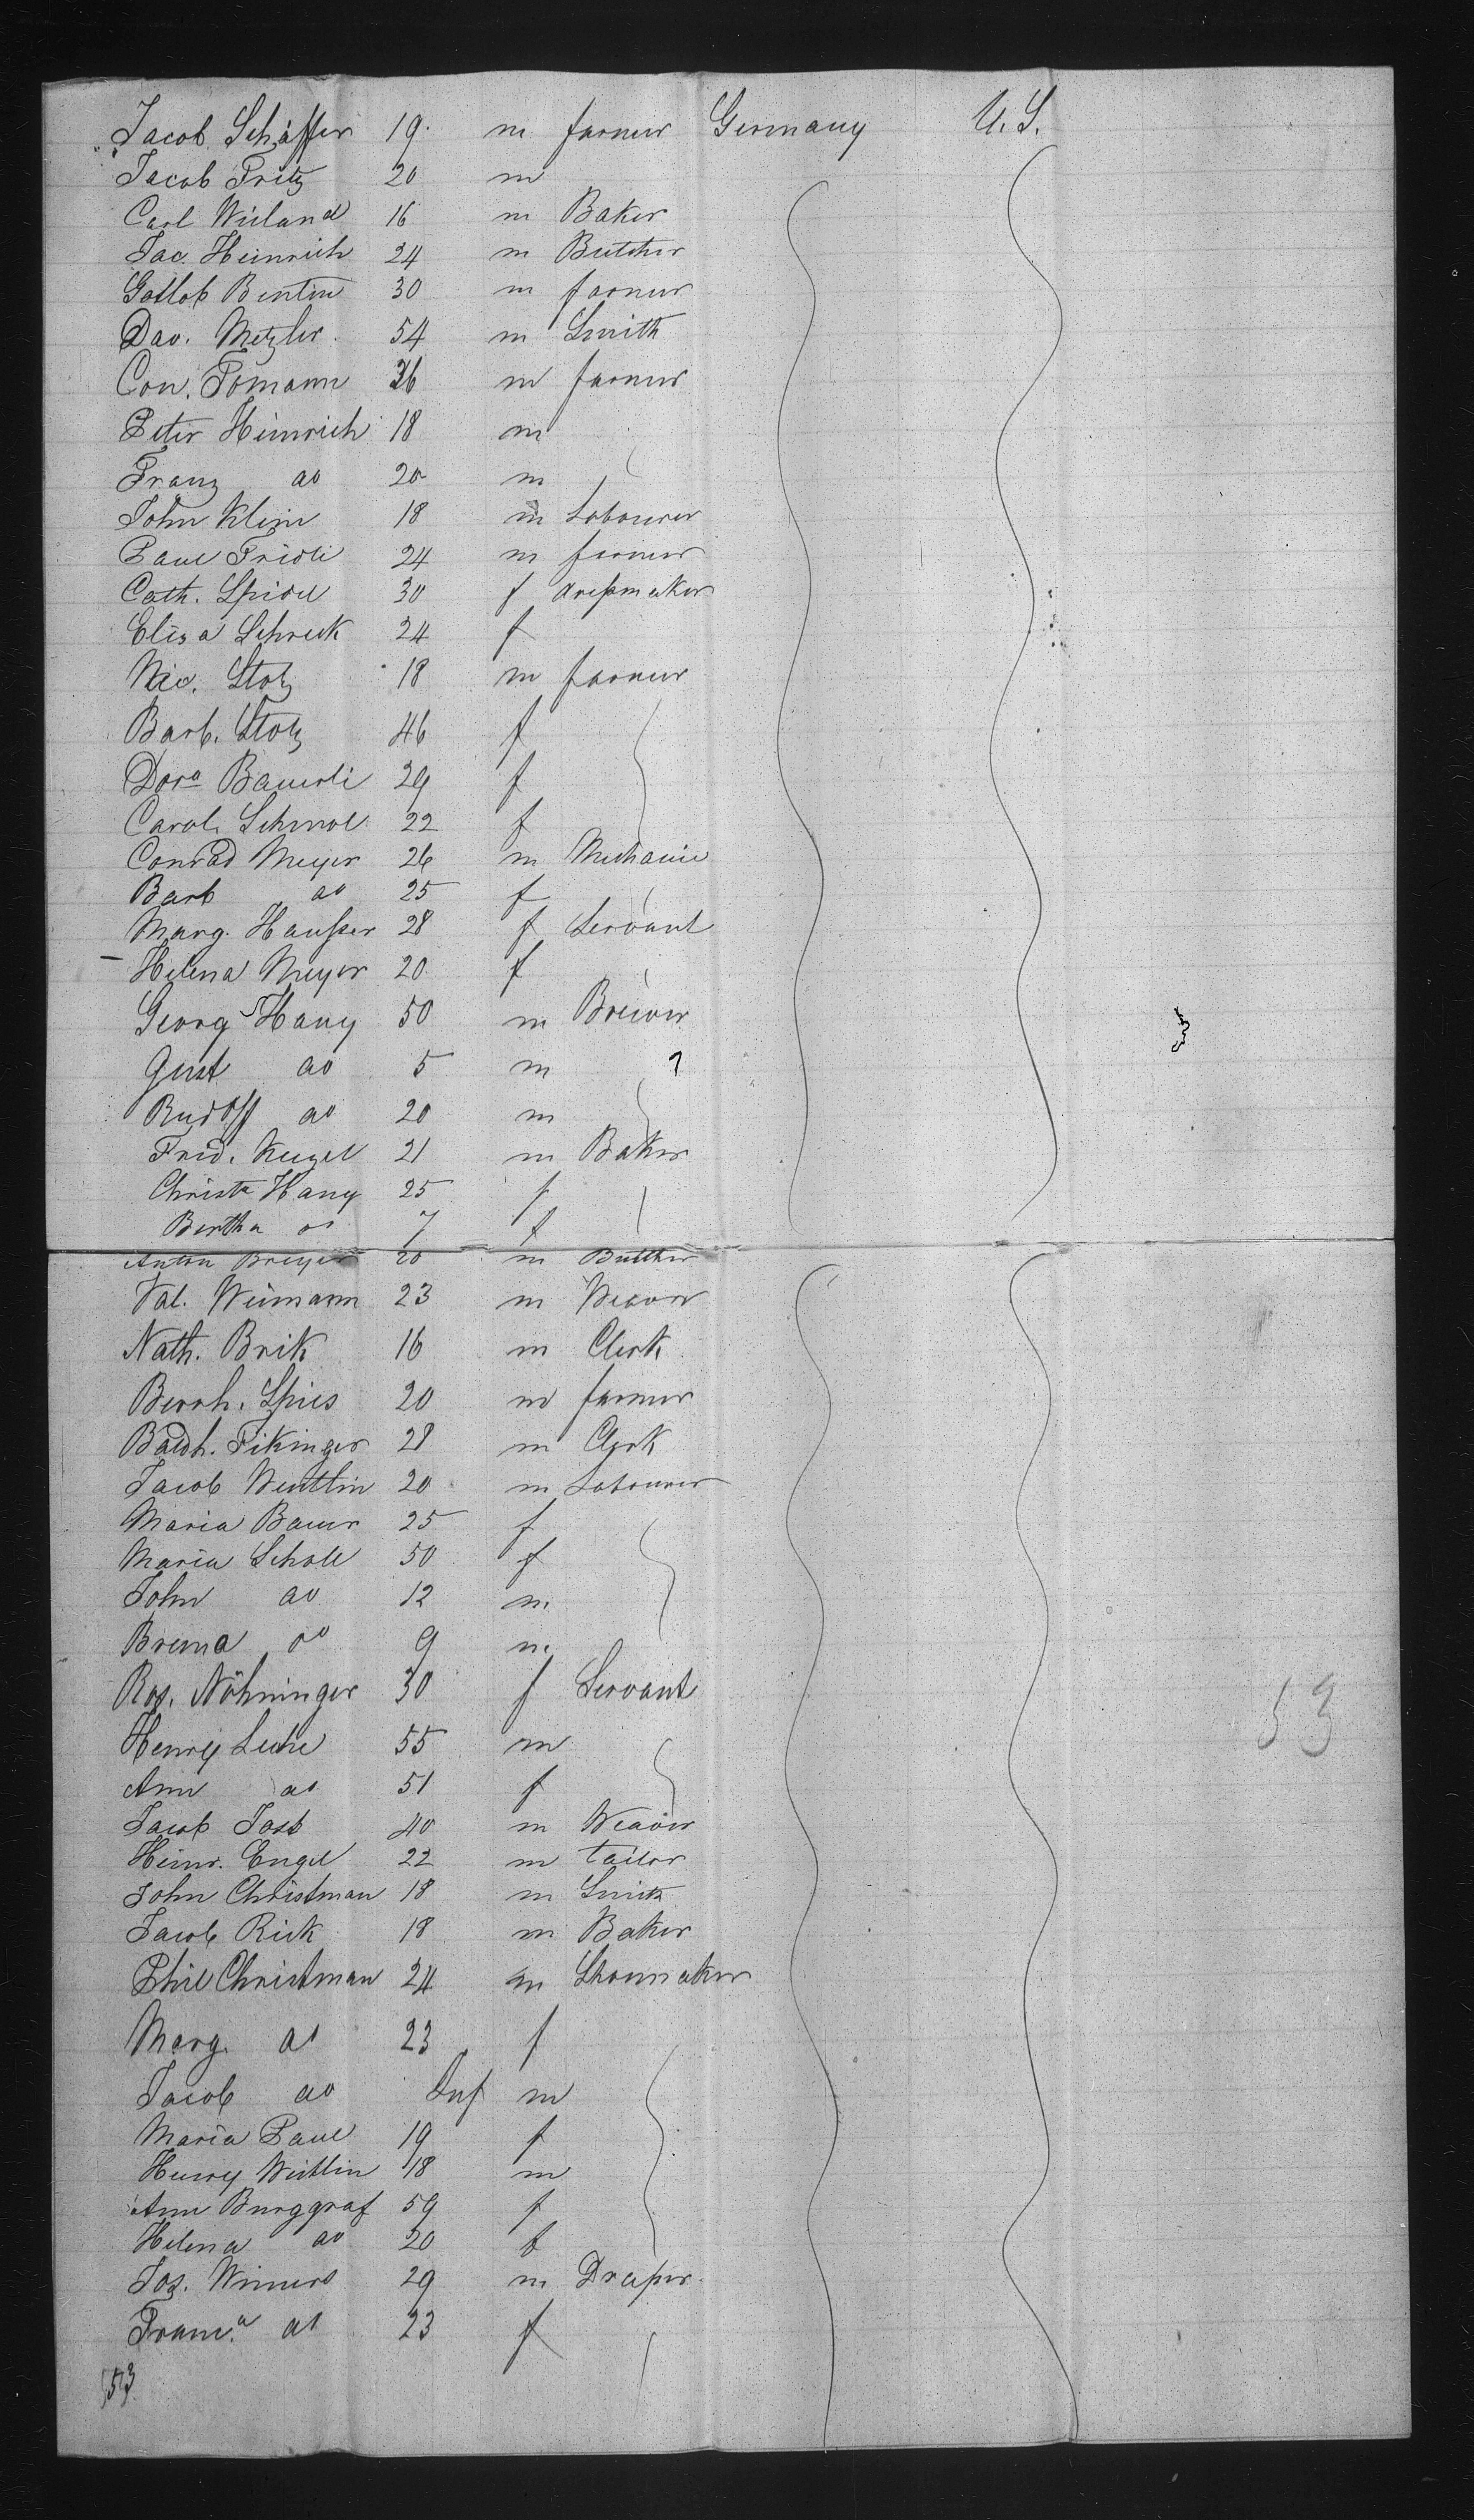 Jacob Schäffer 19 m farmer Germany U.S.
Jacob Fritz 20 m
Carl Wieland 16 m Baker
Jac. Heinrich 24 m Butcher
Gotlob Bentin 30 m farmer
Dav. Metzler 54 m Smith
Con. Tomann 36 m farmer
Peter Heinrich 18 m
Franz do 20 m
John Klein 18 m Labourer
Paul Fridli 24 m farmer
Cath. Spidel 30 f dressmaker
Elisa Schreck 24 f
Nic. Stolz 18 m farmer
Barb. Stolz 46 f
Dora Bauerli 29 f
Carol. Schmol 22 f
Conrad Meyer 26 m Mechanic
Barb do 25 f
Marg. Hausser 28 f Servant
Helena Meyer 20 f
Georg Hany 50 m Brewer
Gust do 5 m
Rudolf do 20 m
Frid. Kugel 21 m Baker
Christa Hany 25 f
Bertha do 7 f
Anton Breyer 20 m Butcher
Val. Weimann 23 m Weaver
Nath. Brik 16 m Clerk
Bernh. Spies 20 m farmer
Baldh. Fikinger 28 m Clerk
Jacob Weitlin 20 m Labourer
Maria Bauer 25 f
Maria Scholl 50 f
John do 12 m
Brema do 9 m
Ros. Nöhninger 30 f Servant
Henry 55 m
Ann do 51 f
Jacob Jost 40 m Weaver
Heinr. Engel 22 m tailor
John Christman 18 m Smith
Jacob Rick 18 m Baker
Phil Christman 24 m Shoemaker
Marg. do 23 f
Jacob do Inf m
Maria Paul 19 f
Henry Weitlin 18 m
Ann Burggraf 59 f
Helena do 20 f
Jos. Wimers 29 m Draper
Franc.a do 23 f
53
53